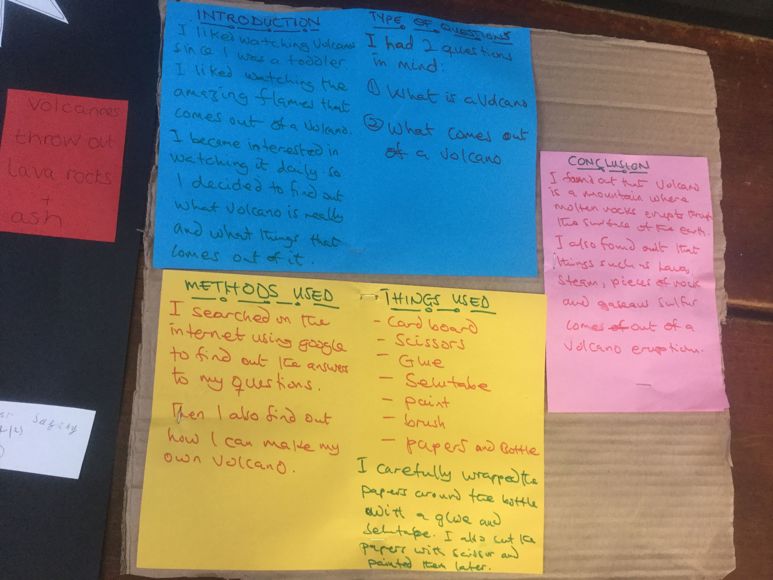 INTRODUCTION
I liked watching Volcano
since I was a toddler.
I liked watching the
amazing flames that
comes out of a Volcano.
I became interested in
watching it daily so
I decided to find out
what Volcano is really
and what things that
comes out of it.
TYPE OF QUESTIONS
I had 2 questions
in mind:
① What is a Volcano
② What comes out
of a Volcano
Volcannes
throw out
Lava rocks
+
ash
CONCLUSION
I found out that Volcano
is a mountain where
molten rocks erupts
the surface of the earth.
I also found out that
things such is Lava,
Steam, pieces of rock
and gaseaw sulfur
comes of out of a
Volcano eruption.
METHODS USED
I searched on the
internet using google
to find out the answer
to my questions.
Then I also find out
how I can make my
own Volcano.
THINGS USED
- Card board
- Scissors
- Glue
- Selutabe
- paint
- brush
- papers and Bottle
I carefully wrapped the
papers around the bottle
with a glue and
Selutape. I also cut the
papers with scissor and
painted them later.